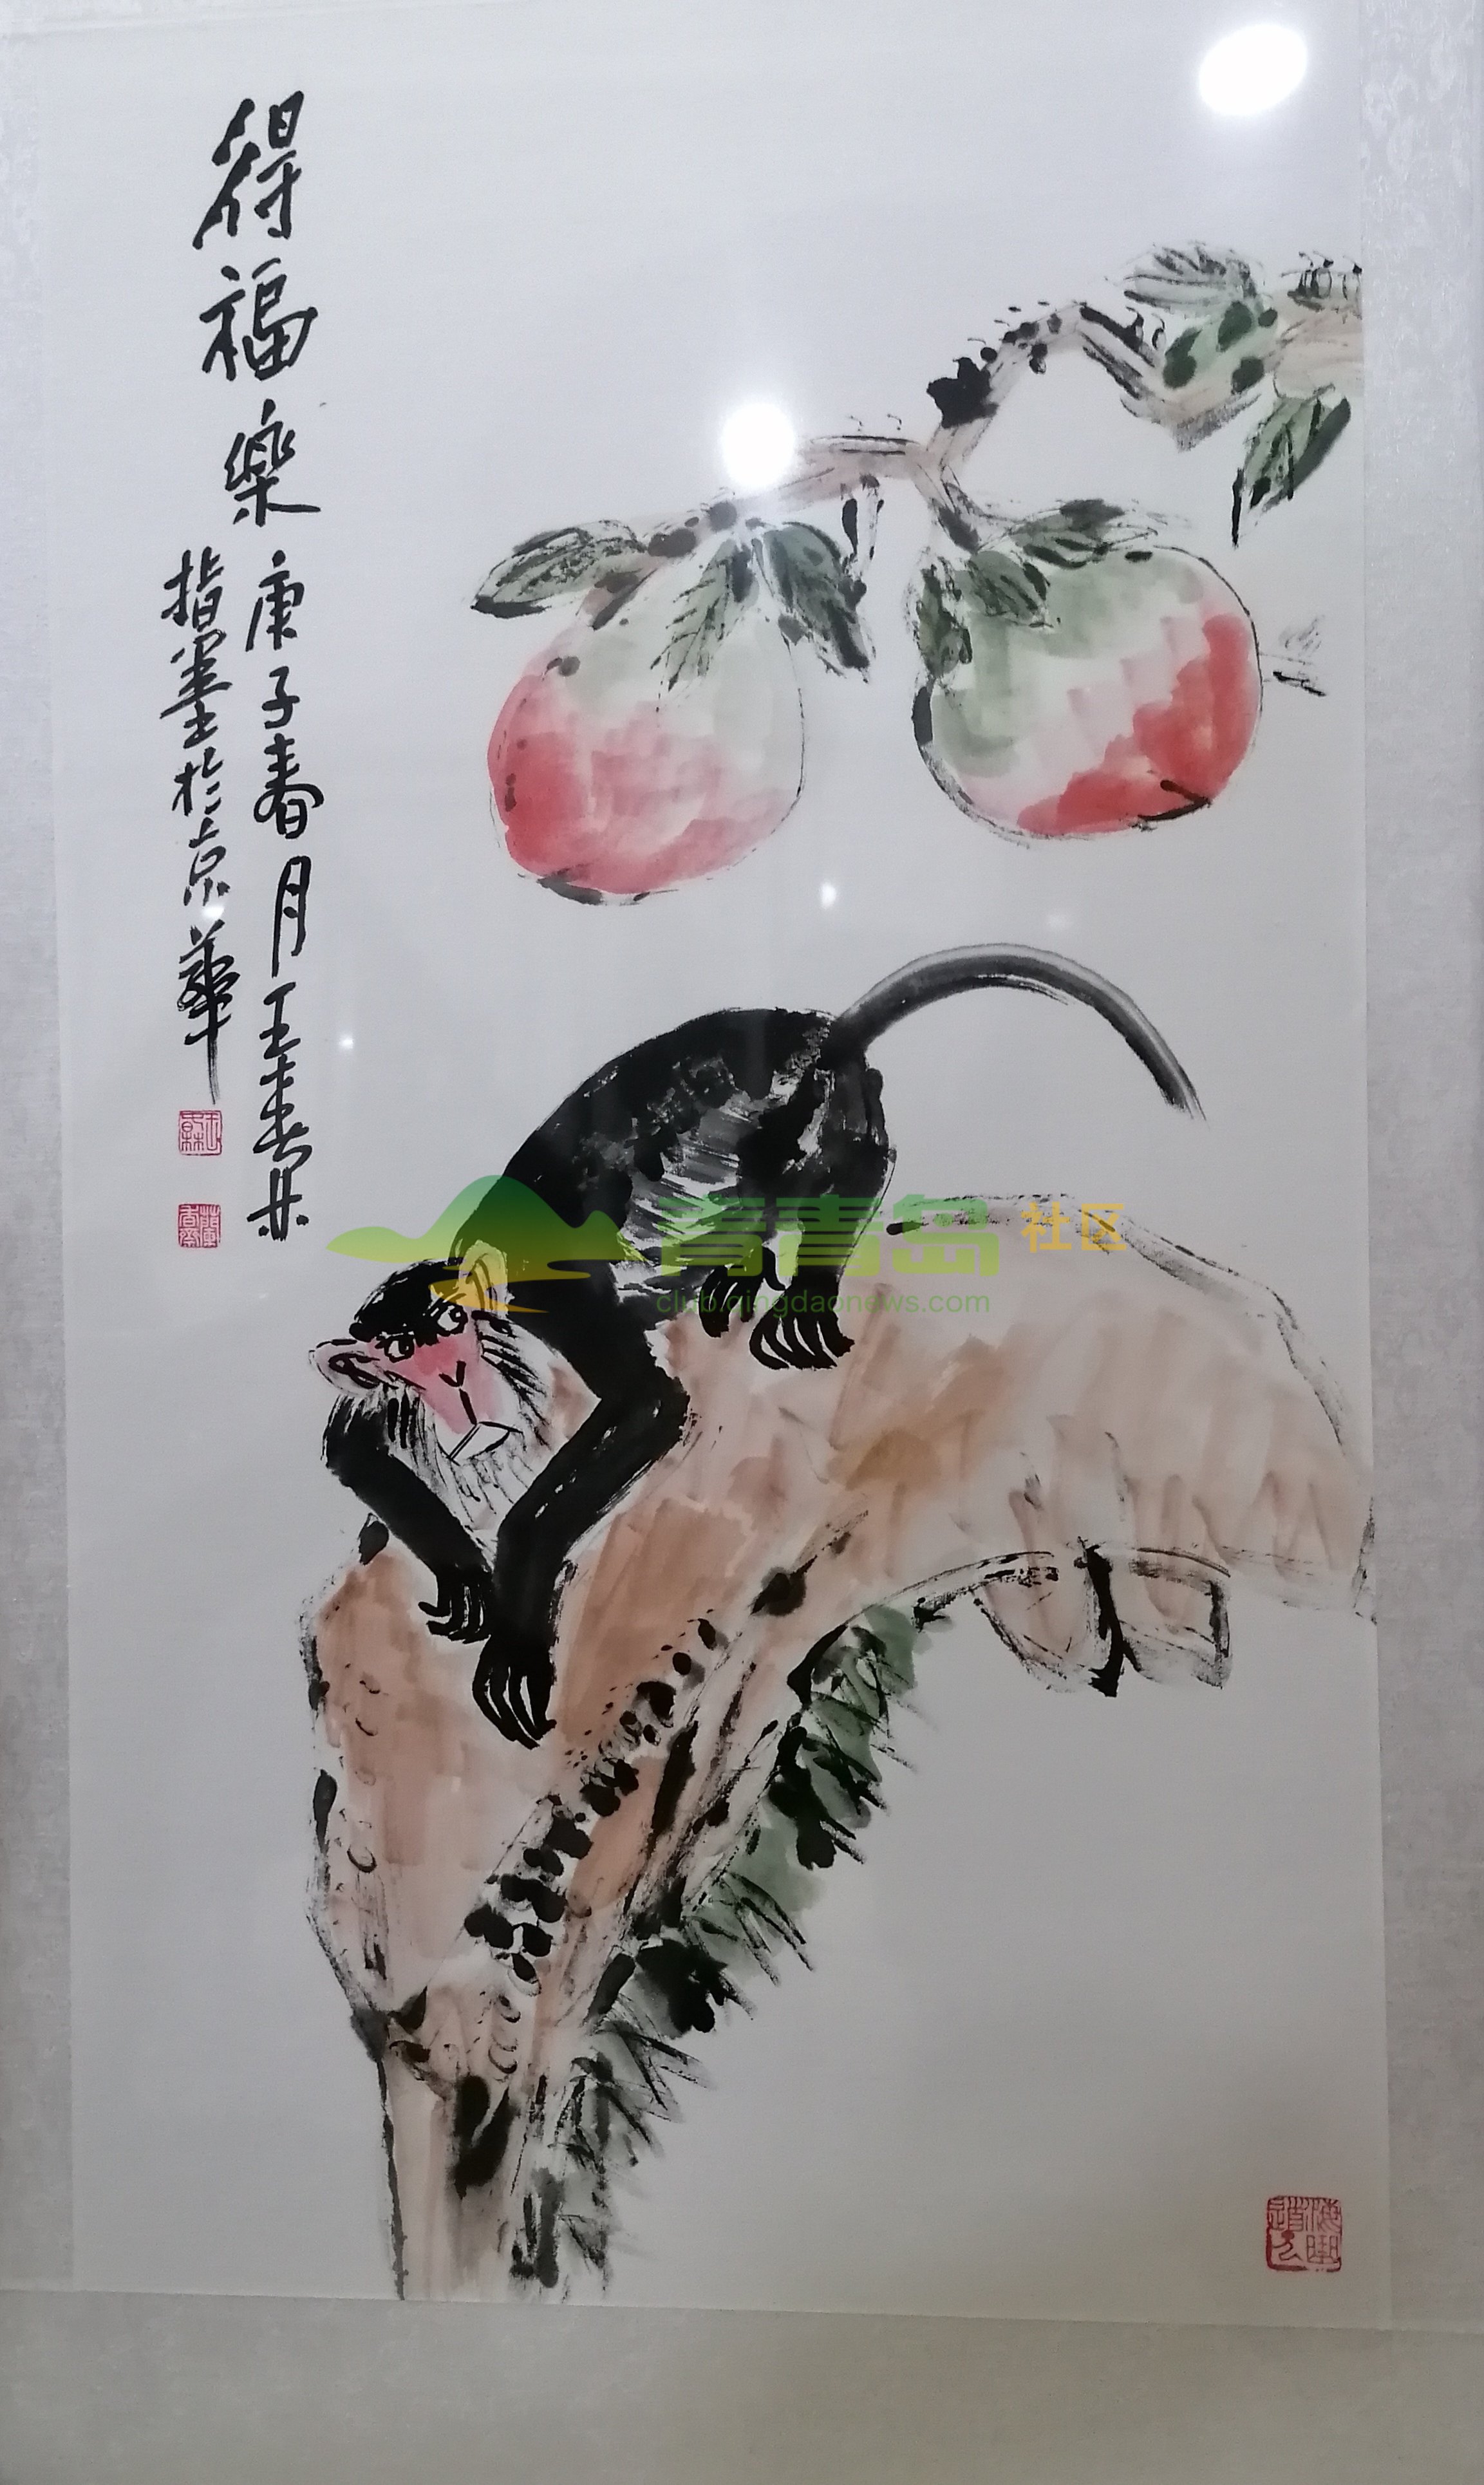 得福樂
庚子春月王春
指墨於京華
青青岛社区
club.qingdaonews.com